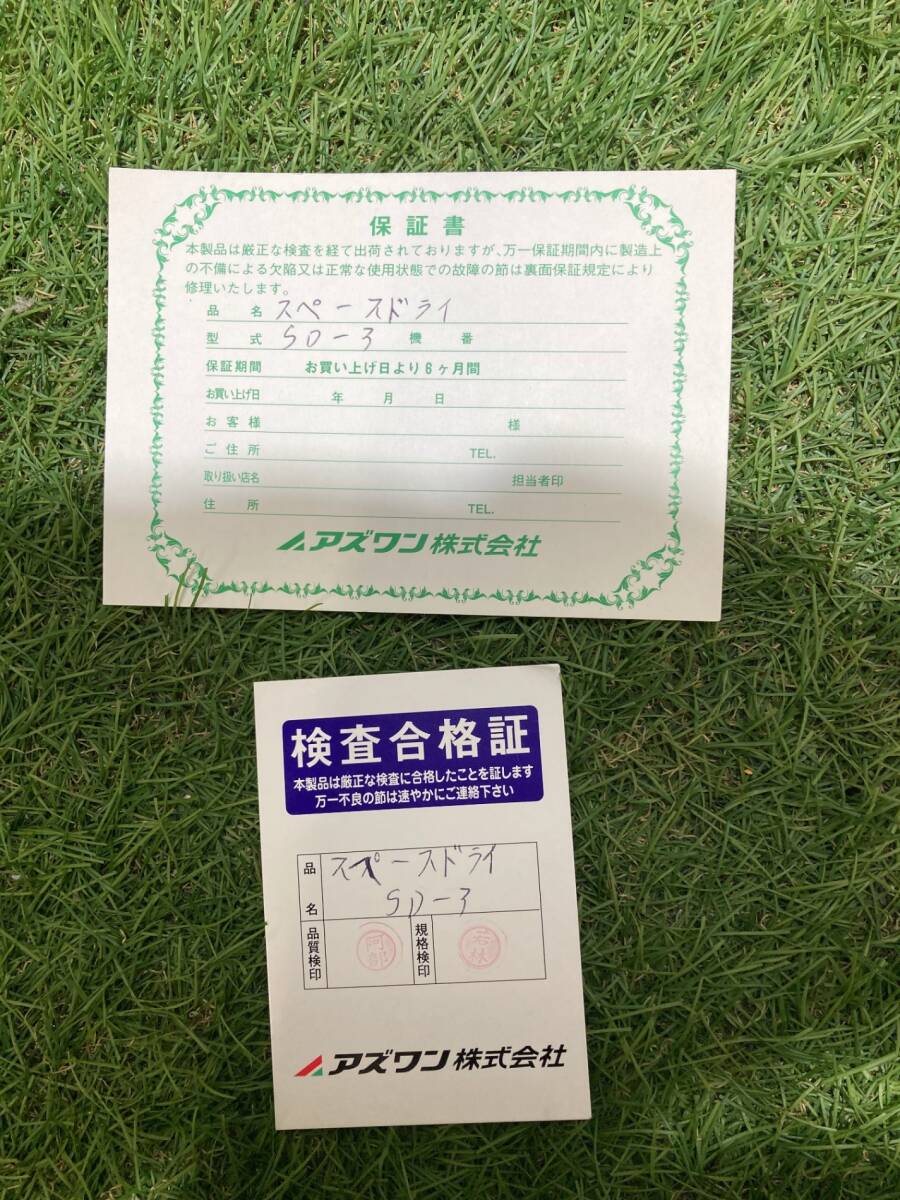 保証書
本製品は厳正な検査を経て出荷されておりますが、万一保証期間内に製造上
の不備による欠陥又は正常な使用状態での故障の節は裏面保証規定により
修理いたします。
品名 スペースドライ
型式 SD-3 機番
保証期間 お買い上げ日より6ヶ月間
お買い上げ日 年 月 日
お客様 様
ご住所 TEL.
取り扱い店名 担当者印
住所 TEL.
アズワン株式会社
検査合格証
本製品は厳正な検査に合格したことを証します
万一不良の節は速やかにご連絡下さい
品名 スペースドライ
SD-3
品質検印 阿部 規格検印 若林
アズワン株式会社